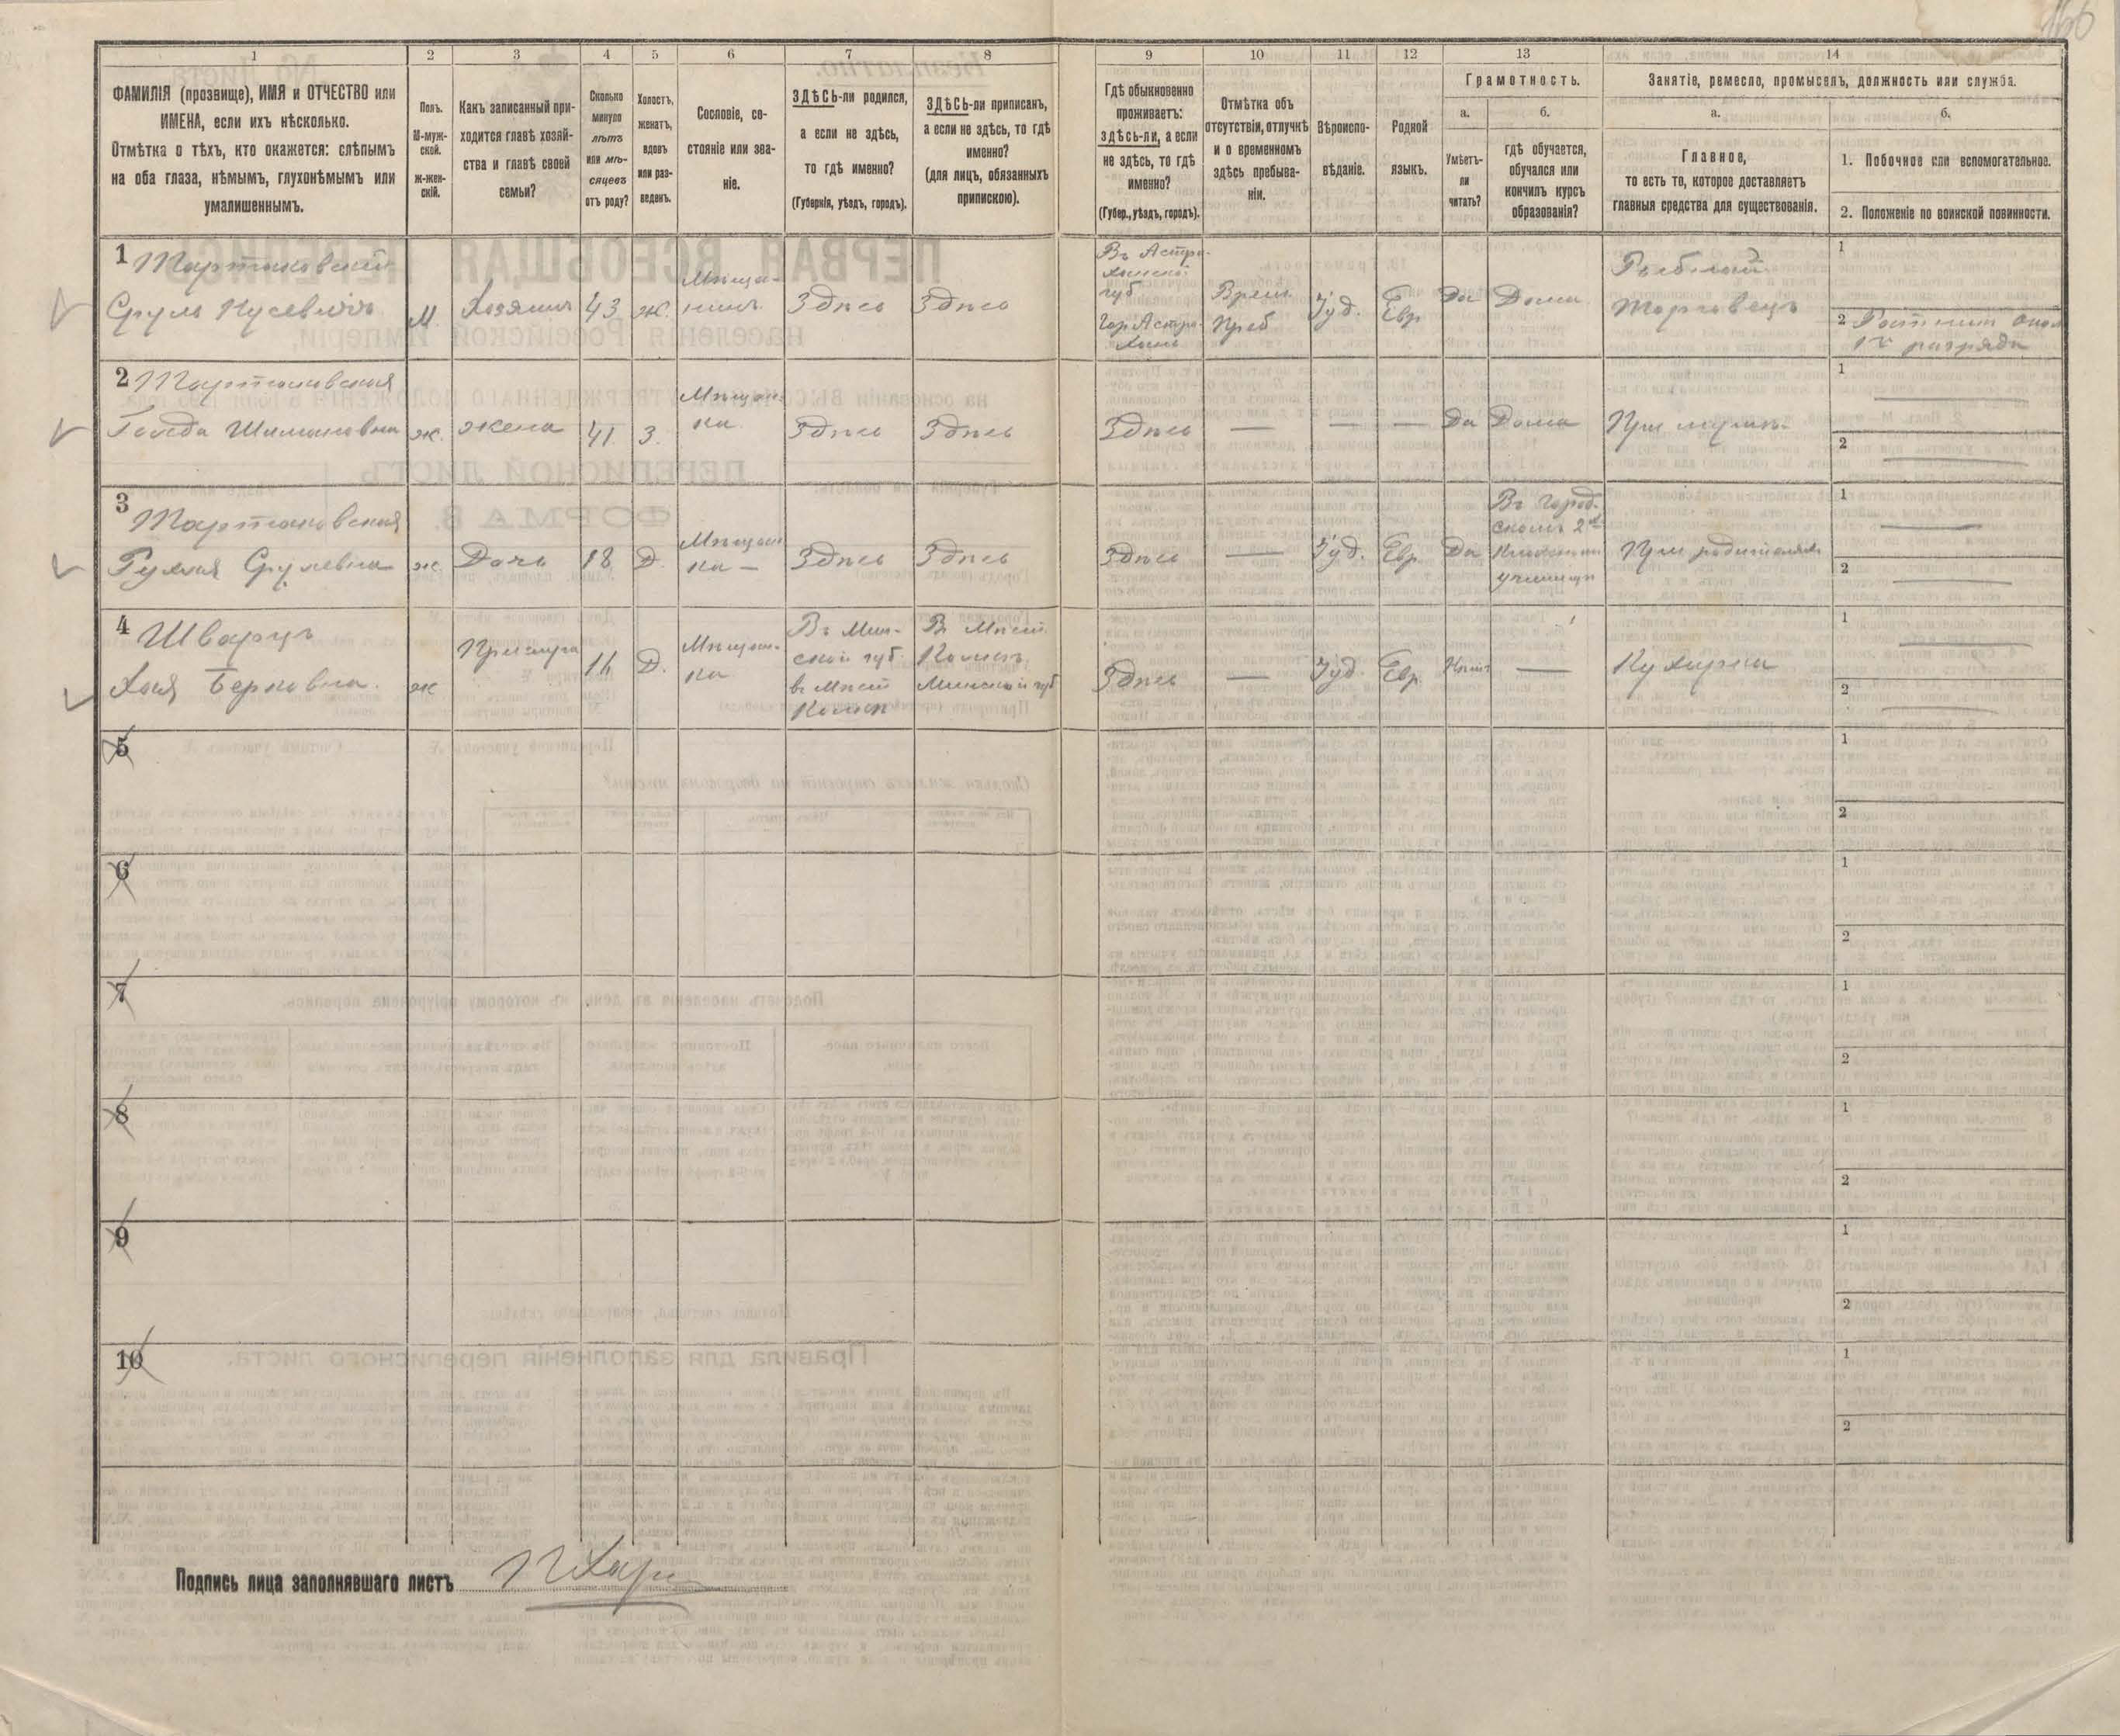 166
1
2
3
4
5
6
7
8
9
10
11
12
13
14
ФАМИЛІЯ (прозвище), ИМЯ и ОТЧЕСТВО или
ИМЕНА, если ихъ нѣсколько.
Отмѣтка о тѣхъ, кто окажется: слѣпымъ
на оба глаза, нѣмымъ, глухонѣмымъ или
умалишеннымъ.
Полъ.
М-муж-
ской.
ж-жен-
скій.
Какъ записанный при-
ходится главѣ хозяй-
ства и главѣ своей
семьи?
Сколько
минуло
лѣтъ
или мѣ-
сяцевъ
отъ роду?
Холостъ,
женатъ,
вдовъ
или раз-
веденъ.
Сословіе, со-
стояніе или зва-
ніе.
ЗДѢСЬ-ли родился,
а если не здѣсь,
то гдѣ именно?
(Губернія, уѣздъ, городъ).
ЗДѢСЬ-ли приписанъ,
а если не здѣсь, то гдѣ
именно?
(для лицъ, обязанныхъ
припискою).
Гдѣ обыкновенно
проживаетъ:
здѣсь-ли, а если
не здѣсь, то гдѣ
именно?
(Губер., уѣздъ, городъ).
Отмѣтка объ
отсутствіи, отлучкѣ
и о временномъ
здѣсь пребыва-
ніи.
Вѣроиспо-
вѣданіе.
Родной
языкъ.
Грамотность.
а.
Умѣетъ-
ли
читать?
б.
гдѣ обучается,
обучался или
кончилъ курсъ
образованія?
Занятіе, ремесло, промыселъ, должность или служба.
а.
Главное,
то есть то, которое доставляетъ
главныя средства для существованія.
б.
1. Побочное или вспомогательное.
2. Положеніе по воинской повинности.
1
Сруль
М.
Хозяинъ
43
ж.
Мѣща-
нинъ
Здѣсь
Здѣсь
Въ Астра-
ханской
губ.
Гор. Астра-
хань
Врем.
преб
Іуд.
Евр
Да
Дома
Торговецъ
1
2 Ратник опол
1го разряда
2
Шимоновна
ж.
жена
41.
З.
Мѣщан-
ка
Здѣсь
Здѣсь
Здѣсь
—
—
—
Да
Дома
При мужѣ
1
2
3
Срулевна
ж.
Дочь
18
Д.
Мѣщан
ка —
Здѣсь
Здѣсь
Здѣсь
—
Іуд.
Евр
Да
Въ город-
скомъ 2х
классномъ
училищѣ
При родителяхъ
1
2
4
Шварцъ
Хая Берковна.
ж
Прислуга
Д.
Мѣщан-
ка
Въ Мин-
ской губ.
в мѣст
Въ мѣст.
Минской губ
Здѣсь
—
Іуд.
Евр
Нѣтъ
—
Кухарка
1
2
5
1
2
6
1
2
7
1
2
8
1
2
9
1
2
10
1
2
Подпись лица заполнявшаго листъ